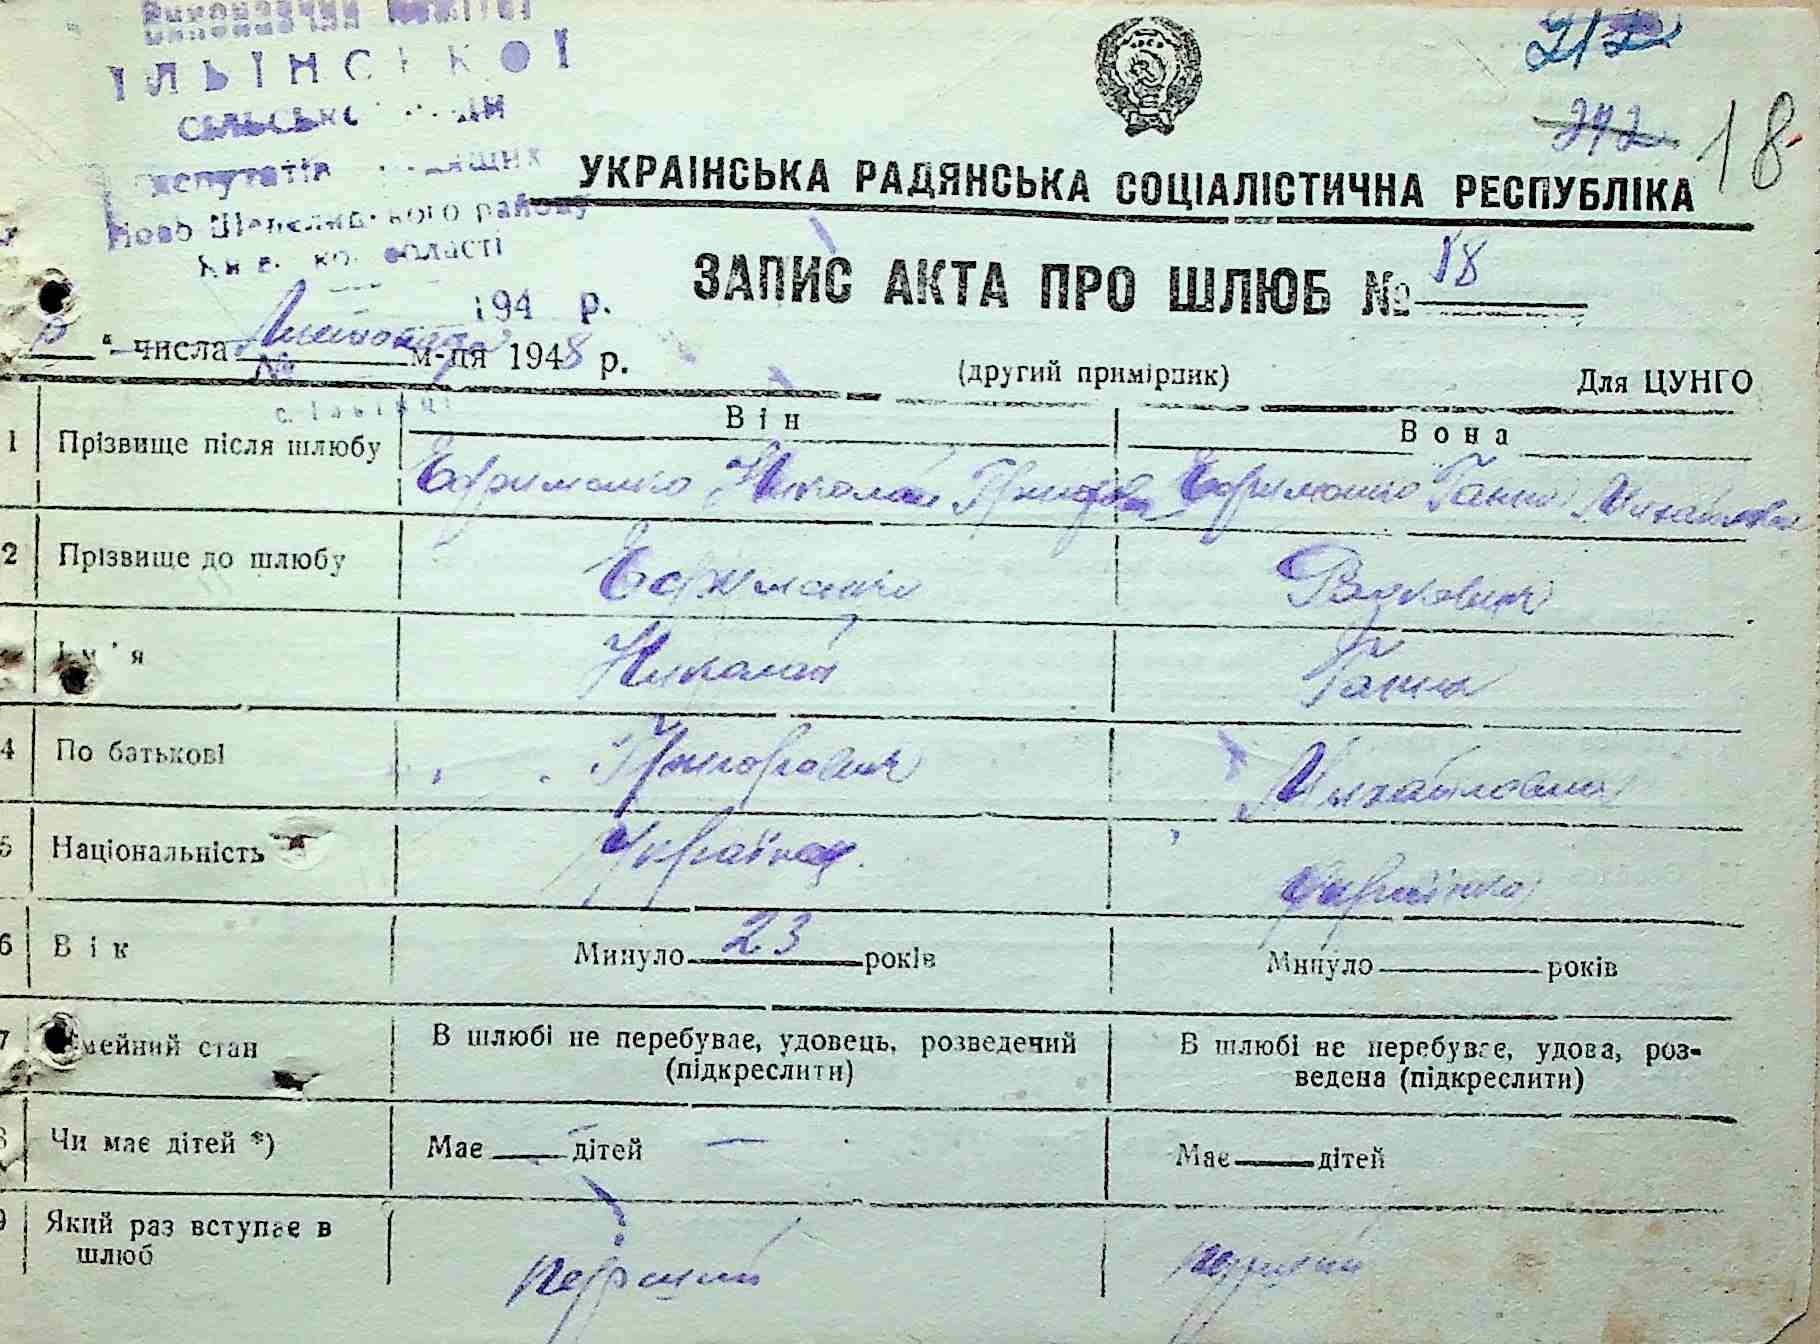 Виконавчий Комітет
ІЛЬІНСЬКОЇ
сільської ради
депутатів трудящих
Ново-Шепелицького району
Київської області
194 р.
№
212
242
18
УКРАІНСЬКА РАДЯНСЬКА СОЦІАЛІСТИЧНА РЕСПУБЛІКА
ЗАПИС АКТА ПРО ШЛЮБ № 18
" числа Листопада м-ця 1948 р.
(другий примірник)
Для ЦУНГО
Він
Вона
1 Прізвище після шлюбу Ефрименко Николай Ефрименко Ганна Михайловна
2 Прізвище до шлюбу Ефрименко
Ім'я Николай Ганна
4 По батькові Григорович Михайловна
5 Національність Українец Українка
6 Вік Минуло 23 років Минуло років
7 Сімейний стан В шлюбі не перебуває, удовець, розведений (підкреслити) В шлюбі не перебуває, удова, роз-
ведена (підкреслити)
8 Чи має дітей *) Має дітей — Має дітей
9 Який раз вступає в
шлюб перший перший